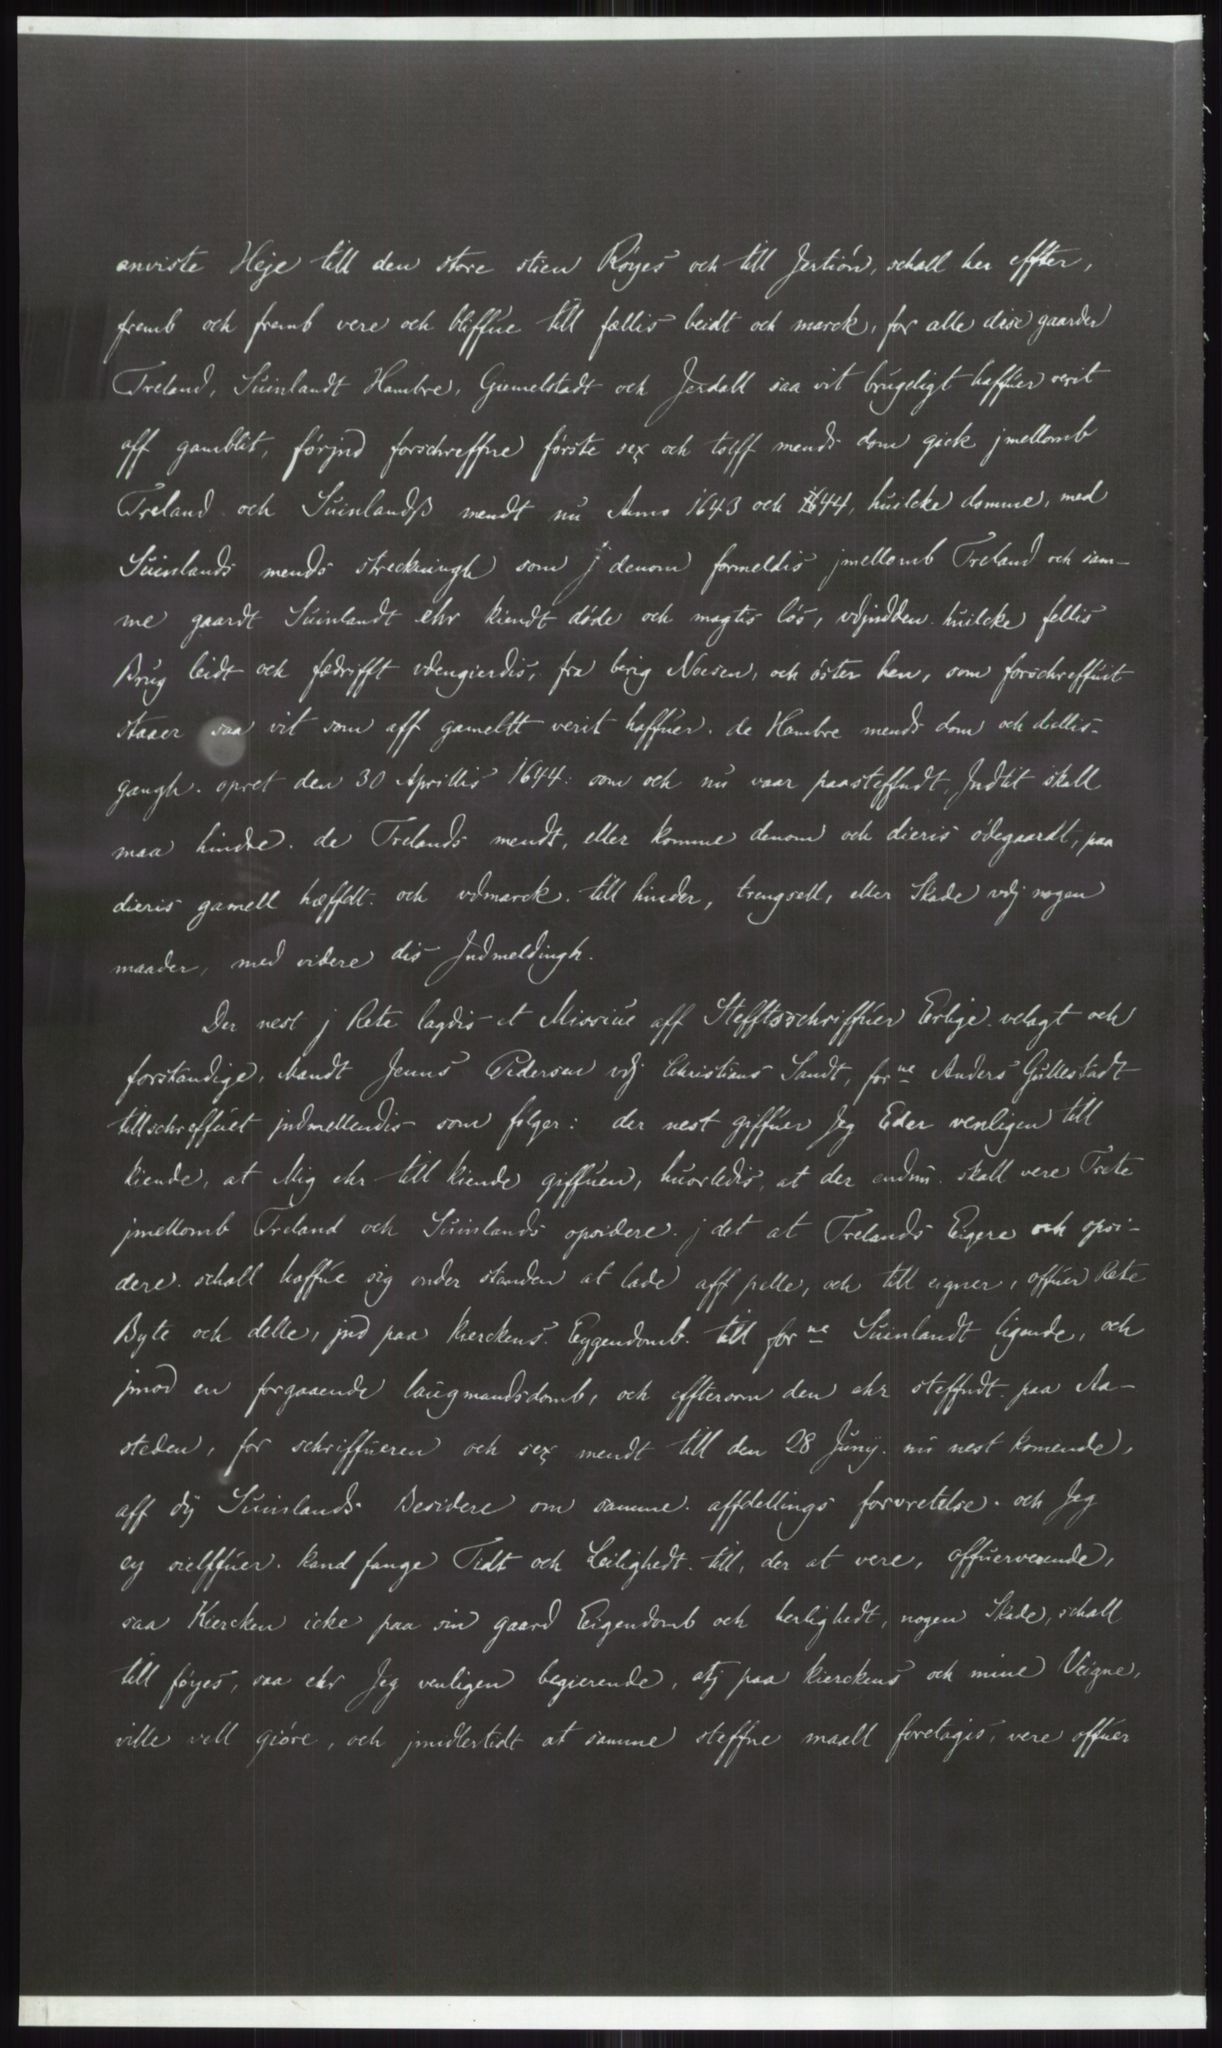 anviste Heje till den store stien Röyes och till Jertiön, schall her effter,
fremb och fremb vere och bliffue till fællis beidt och marck, for alle dise gaarder
Treland, Suinlandt Hambre, Giemelstadt och Jerdall saa vit brugeligt haffuer verit
aff gamblit, förjnd forschreffne förste sex och tolff mends dom gick jmellomb
Treland och Suinlandß mendt nu Anno 1643 och 1644, huilcke domme, med
Suinlands mends streckningh som j denom formeldis jmellomb Treland och sam-
me gaardt Suinlandt ehr kiendt döde och magtis lös, vdjndden huilcke fellis
Brug beidt och fædrifft vdengierdis, fra berig Noesen, och öster hen, som forschreffuit
staaer saa vit som aff gameltt verit haffuer. de Hambre mends dom och dellis-
gangh opret den 30 Aprillis 1644: som och nu vaar paasteffndt, Jndtit skall
maa hindre de Trelands mendt, eller komme denom och dieris ödegaardt, paa
dieris gamell hæffdt och vdmarck till hinder, trengsell, eller Skade vdj nogen
maader, med videre dis Jndmeldingh.
Der nest j Rete lagdis et Missiue aff Stefftsschriffuer Erlige velagt och
forstandige, Mandt Jenns Pedersen vdj Christians Sandt, for ne Anders Gullestadt
tillschreffuet jndmellendis som fölger: der nest giffuer Jeg Eder venligen till
kiende, at Mig ehr till kiende giffuen, huorledis, at der endnu skall vere Trete
jmellomb Treland och Suinlands opsidere j det at Trelands Eigere och opsi-
dere schall haffue sig under standen at lade aff pelle, och till eigner, offuer Rete
Byte och delle, jnd paa kierckens Eygendomb till for ne Suinlandt ligende, och
jmod en forgaaende laugmandsdomb, och effterson den ehr steffndt paa Aa-
steden, for schriffueren och sex mendt till den 28 Junij nu nest komende,
aff dij Suinlands Besidere om samme affdellings forvretelse och Jeg
ey sielffuer kand fange Tidt och Leilighedt till, der at vere, offuerverende,
saa Kiercken icke paa sin gaard Eigendomb och herlighedt, nogen Skade, schall
till föyes, saa ehr Jeg venligen begierende, atj paa kierckens och mine Veigne,
ville vell giöre, och jmidlertidt at samme steffne maall foretagis, vere offuer